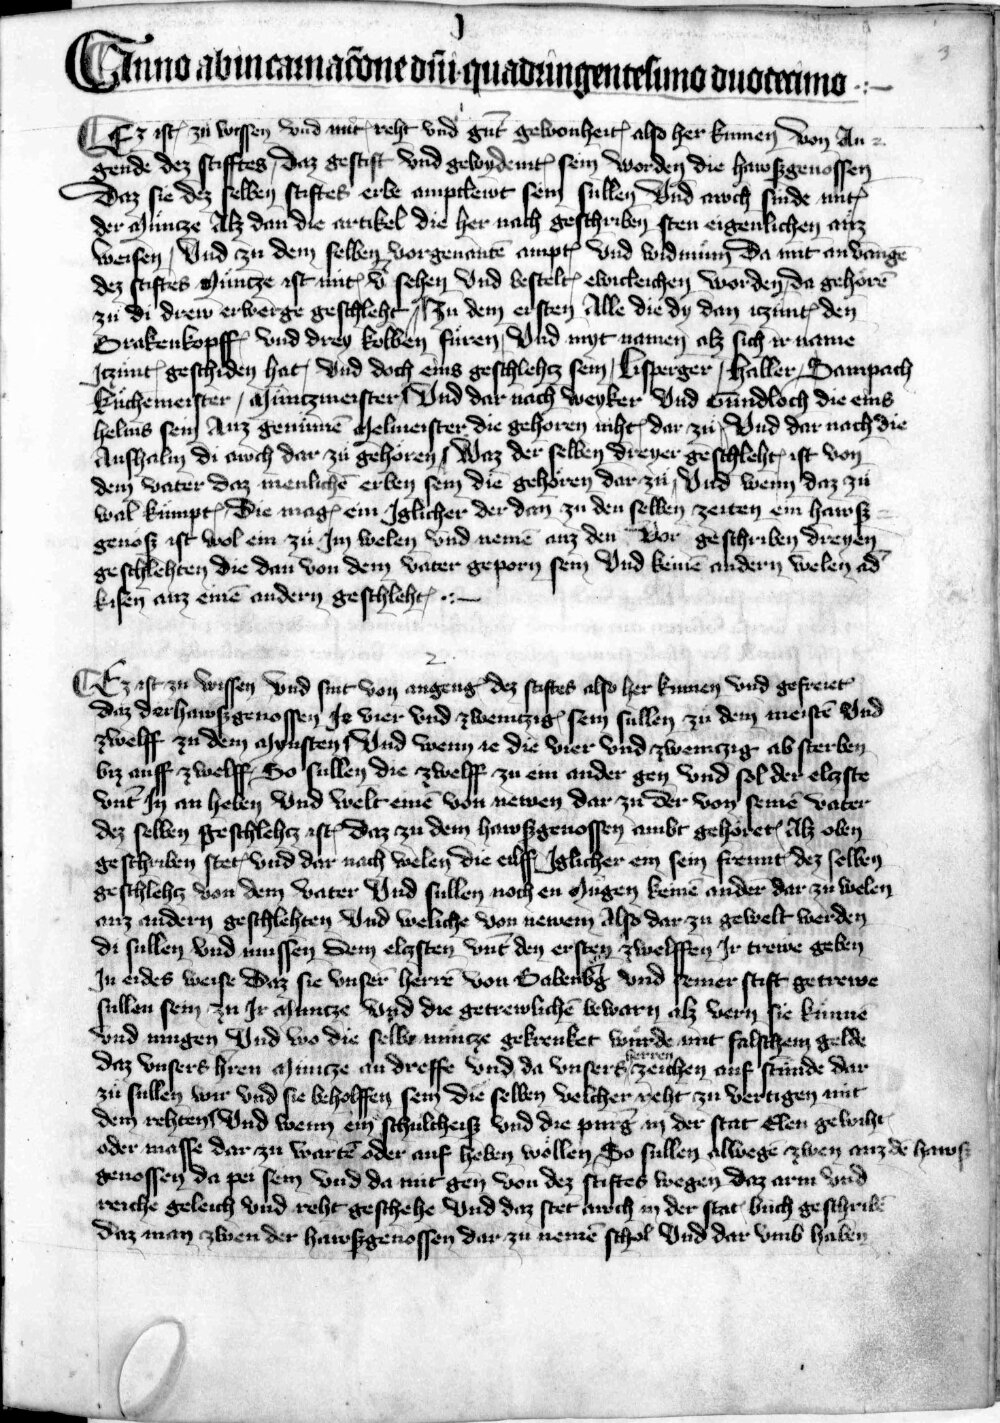 J
3
Anno ab incarnac̄one dn̄i quadringentesimo duodecimo
1
Ez ist zu wissen vnd mit reht vnd gut̄ gewonheit also her kumen von An-
gende dez stifftes / Daz gestift vnd gewydemt sein worden die hawszgenossen
Daz sie dez selben stiftes erbe amptlewt sein sullen Vnd awch sinde mit
der Müncze Alz dan die artikel die her nach geschriben sten eigenlichen auz
weisen / Vnd zu dem selben vorgenantē ampt vnd widmūm Da mit anvangē
dez stiftes Müntze ist mit v̄ sehen Vnd bestelt ewickleichen worden / da gehörē
zu di drew erberge geschleht / Zu dem ersten Alle die dy dan iczunt den
Brakenkopff vnd drey kolben füren / Vnd myt namen alz sich ir name
Jczunt geschiden hat / Vnd doch eins geschlehcz sein / Eisperger / Haller / Sampach
Küchemeister / Müntzmeister / Vnd dar nach weyker Vnd Gundloch die eins
helms sein Auz genumē Melmeister die gehoren niht dar zu / Vnd dar nach die
Aufhalm di awch dar zu gehören / Waz der selben dreyer geschleht ist von
dem vater daz menlichē erben sein die gehören dar zu / Vnd wenn daz zü
wal kümpt / Die mag ein Jglicher der dan zu den selben zeiten ein hawsz-
genosz ist wol ein zu Jm welen vnd nemē auz den Vor geschriben dreyen
geschlehten die dan von dem vater geporn sein Vnd keinē andern welen ad̄
kisen auz einē andern geschleht
2
Ez ist zu wissen vnd sint von angeng dez stiftes also her kumen vnd gefreiet
daz der hawszgenossen Je vier vnd zweinczig sein sullen zu dem meistē Vnd
zwelff zu dem Mynsten / Vnd wenn ie die vier vnd zweinczig ab sterben
biz auff zwelff / So sullen die zwelff zu ein ander gen vnd sol der elczste
vnt̄ Jn an heben Vnd welt einē von newen dar zu der von seinē vater
dez selben geschlehcz ist / Daz zu dem hawszgenossen ambt gehoret Alz oben
geschriben stet vnd dar nach welen die eilff Jglicher ein sein freunt dez selben
geschlehcz von dem vater Vnd sullen noch en Mügen keinē ander dar zu welen
auz andern geschlehten Vnd weliche von newem Also dar zu gewelt werden
di sullen vnd mussen Dem elczsten vnt̄ den ersten zwelffen Jr trewe geben
Jn eides weise Daz sie vnser herrē von Babenb̄g vnd seiner stift getrewe
sullen sein zu Jr Muncze Vnd die getrewlichē bewarn alz vern sie künnē
vnd mugen Vnd wo die selbe müncze gekrenket würde mit falschem gelde
daz vnsers hren Müncze an dreffe vnd da vnsers herren zeichen auf stünde dar
zü sullen wir vnd sie beholffen sein die selben velscher reht zu vertigen mit
dem rehten / Vnd wenn ein schultheisz vnd die purḡ in der stat Elen gewiht
oder masse dar zu wartē oder auf heben wöllen / So sullen alwege zwen auz dē hawsz
genossen da pei sein vnd da mit gen von dez stiftes wegen daz arm vnd
reiche geleich vnd reht geschehe Vnd daz stet awch in der stat buch geschribē
Daz man zwen der hawszgenossen dar zu nemē schol Vnd dar vmb haben